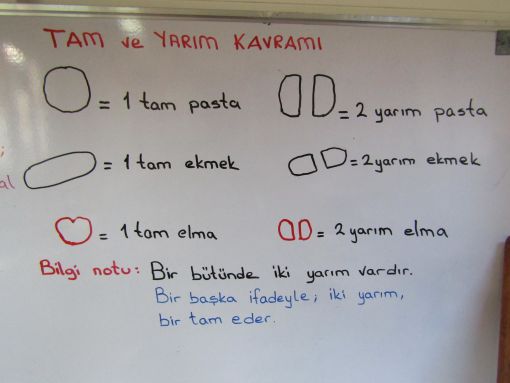 TAM ve YARIM KAVRAMI
= 1 tam pasta = 2 yarım pasta
= 1 tam ekmek = 2 yarım ekmek
= 1 tam elma = 2 yarım elma
Bilgi notu: Bir bütünde iki yarım vardır.
Bir başka ifadeyle; iki yarım,
bir tam eder.